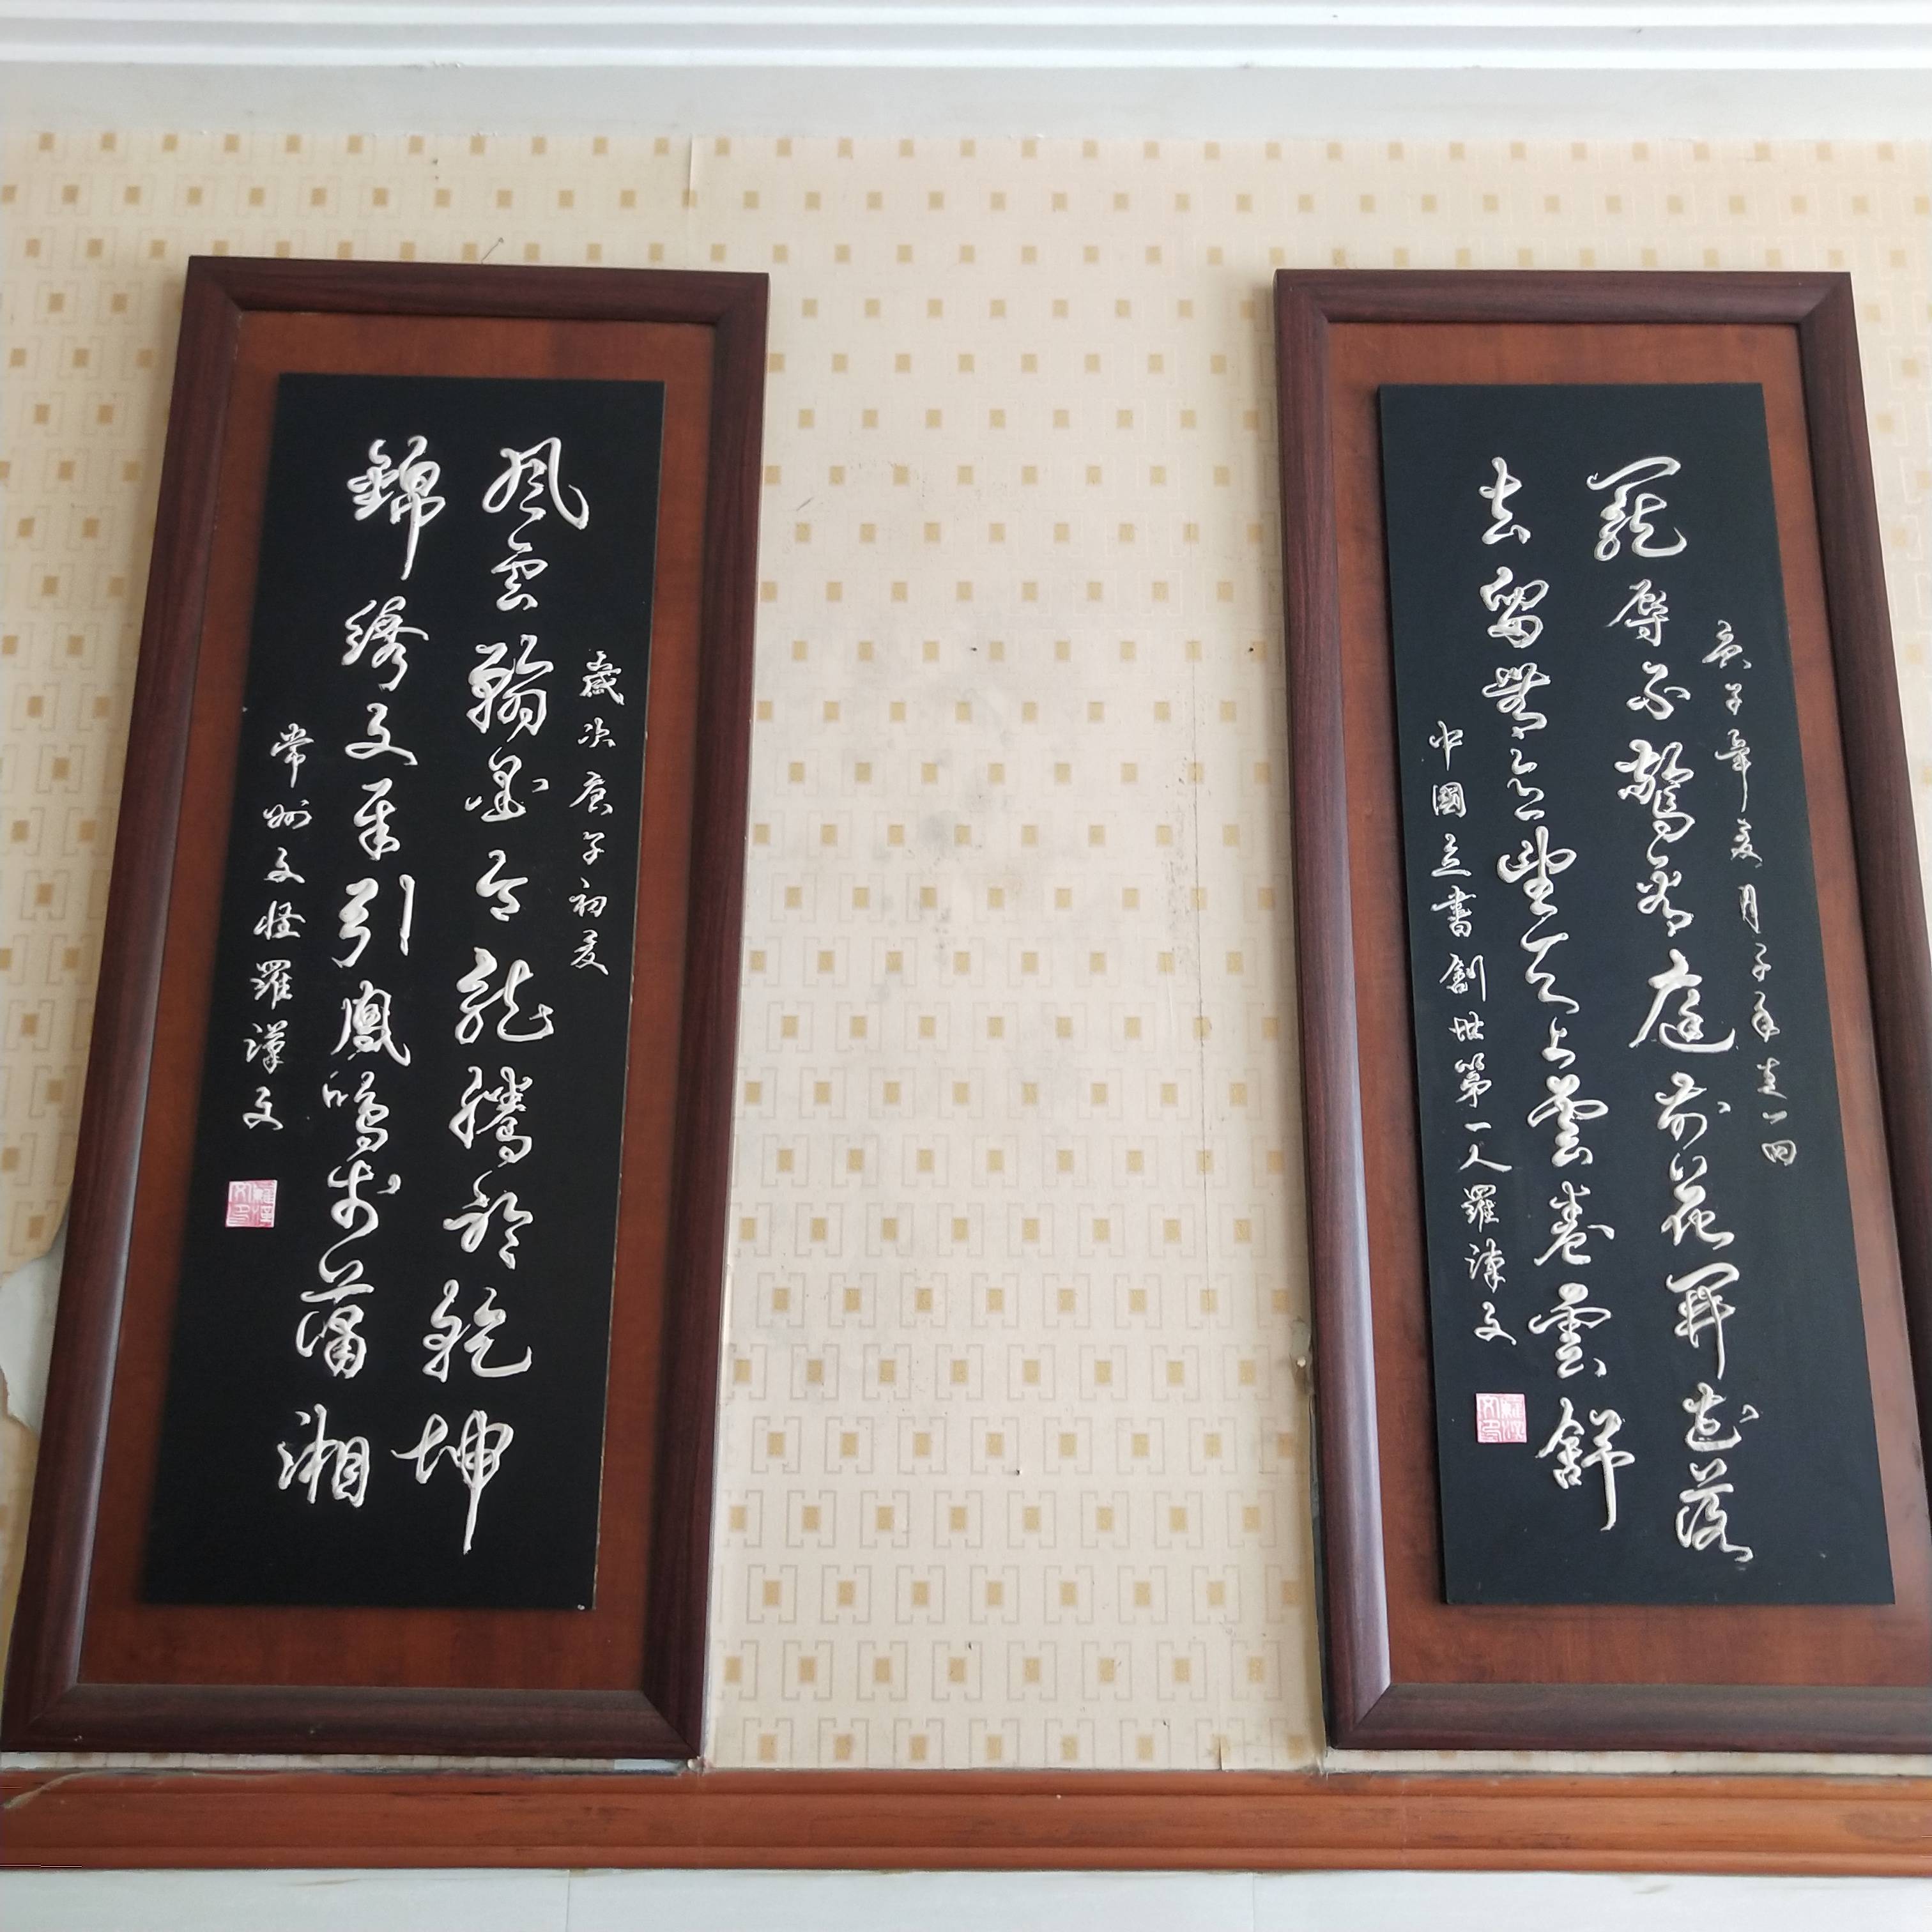 庚子年夏月子年走一回
寵辱不驚看庭前花開花落
去留無意望天上雲卷雲舒
中國立書創世第一人羅漢文
歲次庚子初夏
風雲翰墨令龍騰於乾坤
錦繡文章引鳳鳴於瀟湘
常州文怪羅漢文